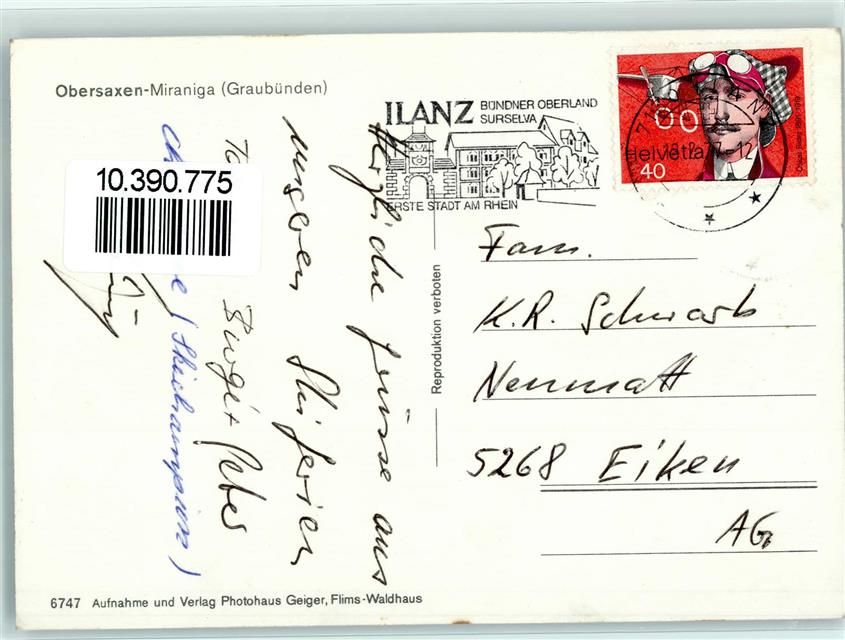 Obersaxen-Miraniga (Graubünden)
10.390.775
ILANZ BÜNDNER OBERLAND
SURSELVA
ERSTE STADT AM RHEIN
Helvetia
40
Herzliche Grüsse aus
unseren Skiferien
Birgit Peter
(Skichampion)
Reproduktion verboten
Fam.
K.R. Schwarb
Neumatt
5268 Eiken
AG
6747 Aufnahme und Verlag Photohaus Geiger, Flims-Waldhaus